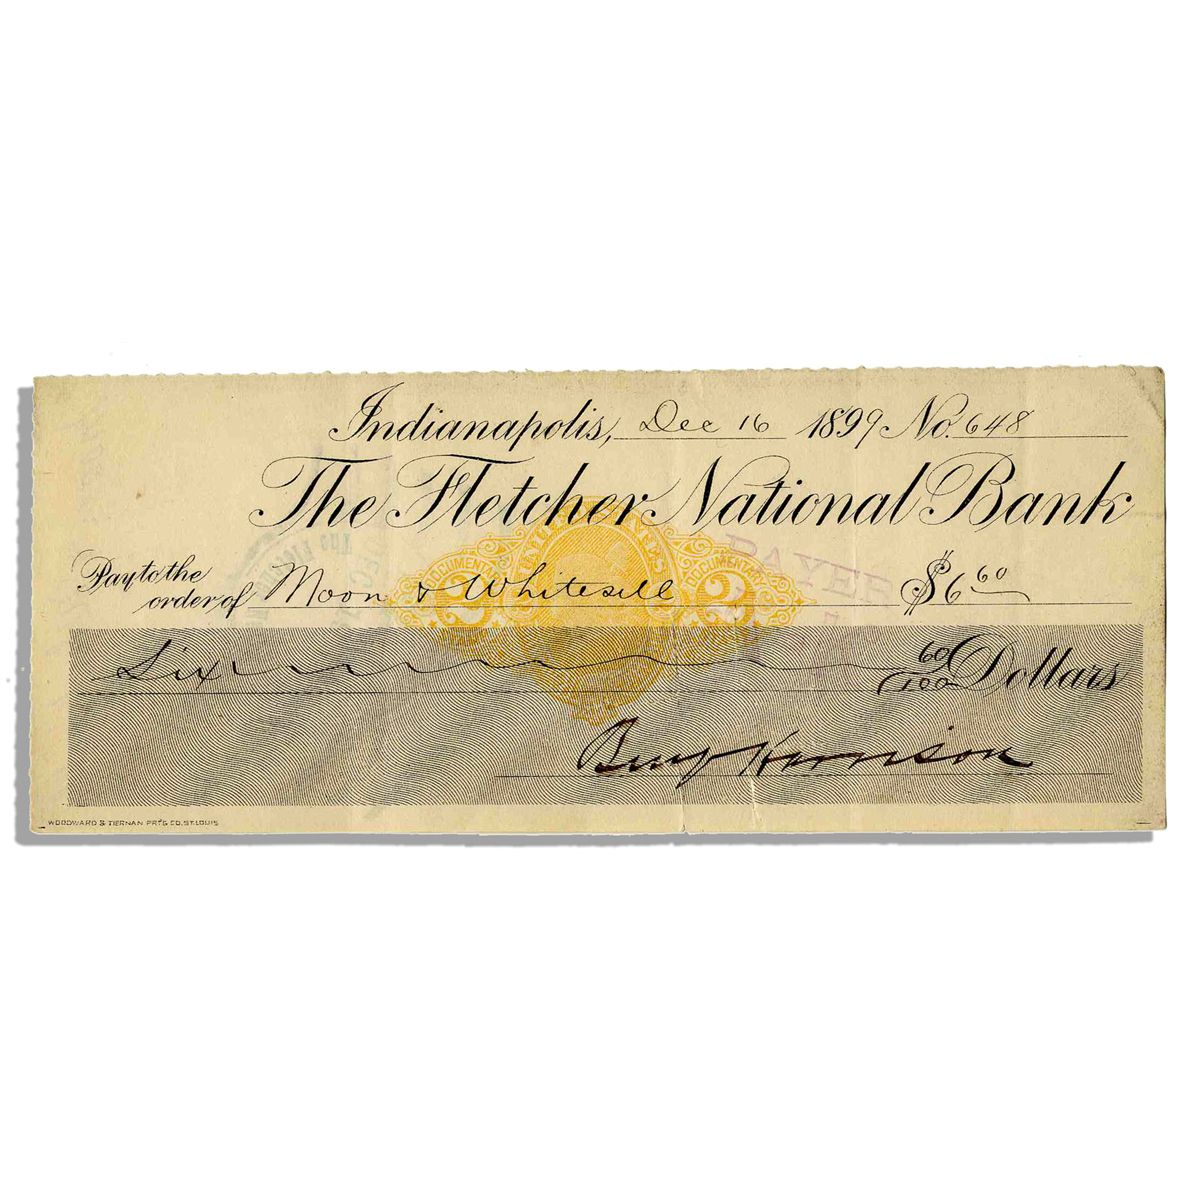 Indianapolis, Dec 16 1899 No. 648
The Fletcher National Bank
Pay to the
order of Moon & Whitesell $6 60
UNITED STATES
DOCUMENTARY DOCUMENTARY
2 2
PAYER
Six 60/100 Dollars
Benj Harrison
WOODWARD & TIERNAN PR'T'G CO. ST. LOUIS